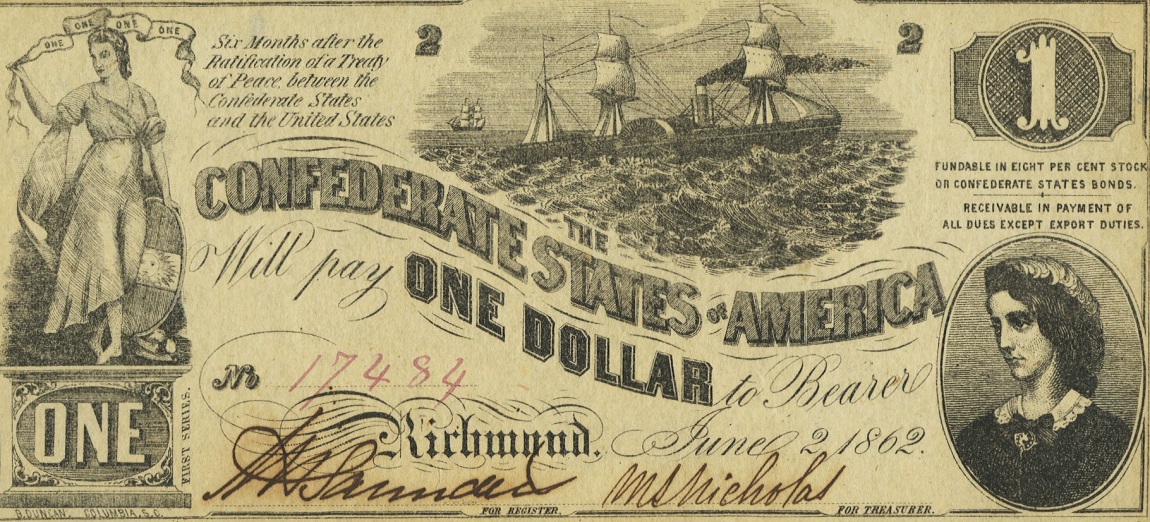 ONE ONE ONE ONE
Six Months after the
Ratification of a Treaty
of Peace between the
Confederate States
and the United States
2
2
1
FUNDABLE IN EIGHT PER CENT STOCK
OR CONFEDERATE STATES BONDS.
RECEIVABLE IN PAYMENT OF
ALL DUES EXCEPT EXPORT DUTIES.
THE
CONFEDERATE STATES OF AMERICA
Will pay ONE DOLLAR to Bearer
No 17484
Richmond. June 2 1862.
ONE
FIRST SERIES.
MS Nicholas
FOR REGISTER.
FOR TREASURER.
B. DUNCAN. COLUMBIA, S.C.